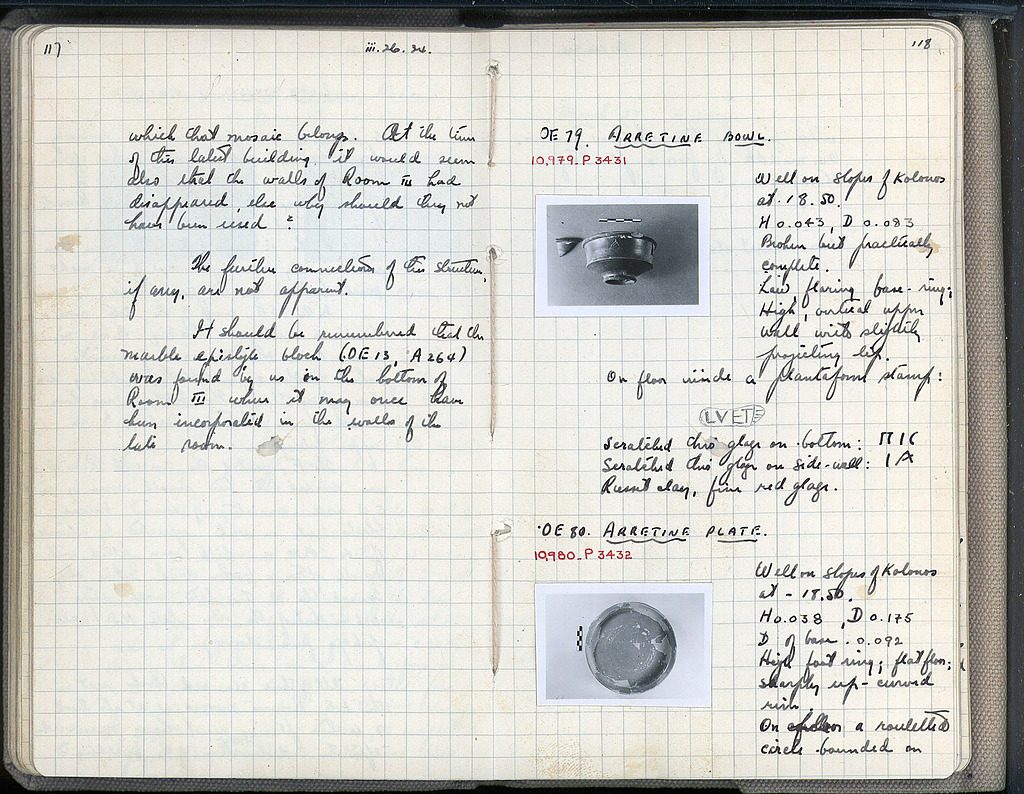 117
iii. 26. 34.
which that mosaic belongs. At the time
of this latest building, it would seem
also that the walls of Room III had
disappeared, else why should they not
have been used?
The further connections of this structure,
if any, are not apparent.
It should be remembered that the
marble epistyle block (OE 13, A 264)
was found by us in the bottom of
Room III where it may once have
been incorporated in the walls of the
late room.
118
OE 79. ARRETINE BOWL.
10,979_P 3431
Well on slopes of Kolonos
at -18.50.
H 0.043, D 0.083
Broken but practically
complete.
Low, flaring base-ring;
High, vertical upper
wall with slightly
projecting lip.
On floor inside a plantaform stamp:
LVETE
Scratched thro glaze on bottom: ΠΙΚ
Scratched thro glaze on side-wall: ΙΑ
Russet clay, fine red glaze.
OE 80. ARRETINE PLATE.
10,980_P 3432
Well on slopes of Kolonos
at -18.50.
H 0.038, D 0.175
D of base. 0.092
High foot ring; flat floor;
sharply up-curved
rim.
On floor a rouletted
circle bounded on